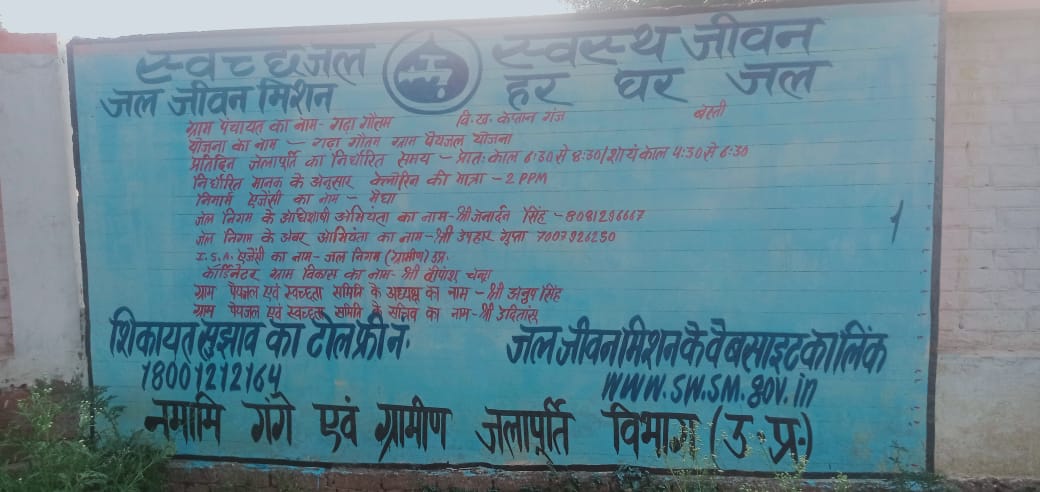 स्वच्छ जल स्वस्थ जीवन
जल जीवन मिशन हर घर जल
ग्राम पंचायत का नाम- गढ़ा गौतम वि.ख. कप्तान गंज बस्ती
योजना का नाम - गढ़ा गौतम ग्राम पेयजल योजना
प्रतिदिन जलापूर्ति का निर्धारित समय - प्रातः काल 6:30 से 8:30/शायं काल 4:30 से 6:30
निर्धारित मानक के अनुसार क्लोरिन की मात्रा - 2 PPM
निगार्म ऐजेंसी का नाम - मेघा
जल निगम के अधिशाषी अभियंता का नाम- श्री जनार्दन सिंह - 8081296667
जल निगम के अवर अभियंता का नाम- श्री उपहार गुप्ता 7007926250
I.S.A. ऐजेंसी का नाम- जल निगम (ग्रामीण) उ.प्र.
कॉर्डिनेटर ग्राम विकास का नाम- श्री दीपांशू चन्द्रा
ग्राम पेयजल एवं स्वच्छता समिति के अध्यक्ष का नाम - श्री अनुप सिंह
ग्राम पेयजल एवं स्वच्छता समिति के सचिव का नाम- श्री
शिकायत सुझाव का टोल फ्री नं. जल जीवन मिशन के वैबसाइट का लिंक
18001212164 www.swsm.gov.in
नमामि गंगे एवं ग्रामीण जलापूर्ति विभाग (उ.प्र.)